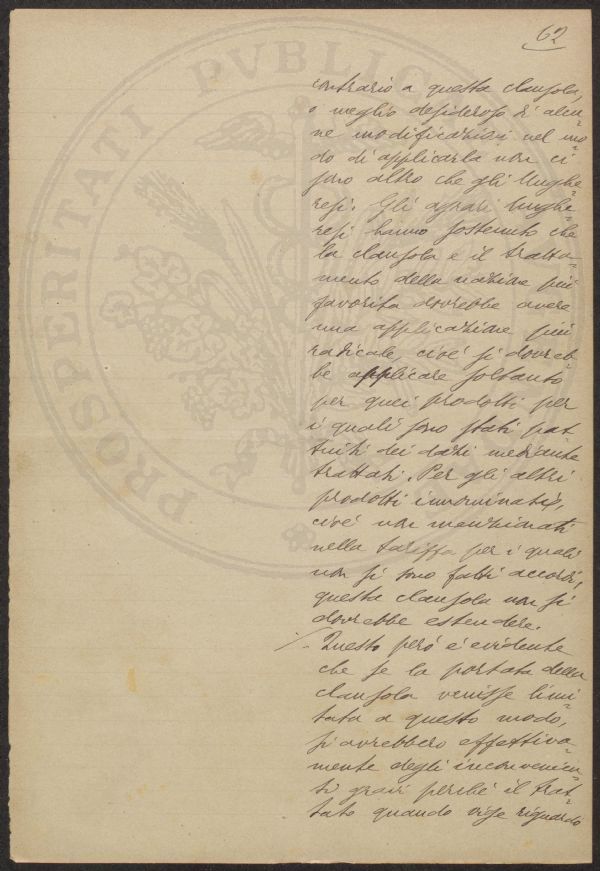 62
PROSPERITATI PVBLIC
contrario a questa clausola,
o meglio desideroso di alcu=
ne modificazioni nel mo=
do di applicarla non ci
sono altro che gli Unghe=
resi. Gli agrari Unghe=
resi hanno sostenuto che
la clausola e il tratta=
mento della nazione più
favorita dovrebbe avere
una applicazione più
radicale, cioè si dovreb=
be applicare soltanto
per quei prodotti per
i quali sono stati pat=
tuiti dei dazi mediante
trattati. Per gli altri
prodotti innominati,
cioè non menzionati
nella tariffa per i quali
non si sono fatti accordi,
questa clausola non si
dovrebbe estendere.
Questo però è evidente
che se la portata della
clausola venisse limi=
tata a questo modo,
si avrebbero effettiva=
mente degli inconvenien=
ti gravi perché il trat=
tato quando riguardo